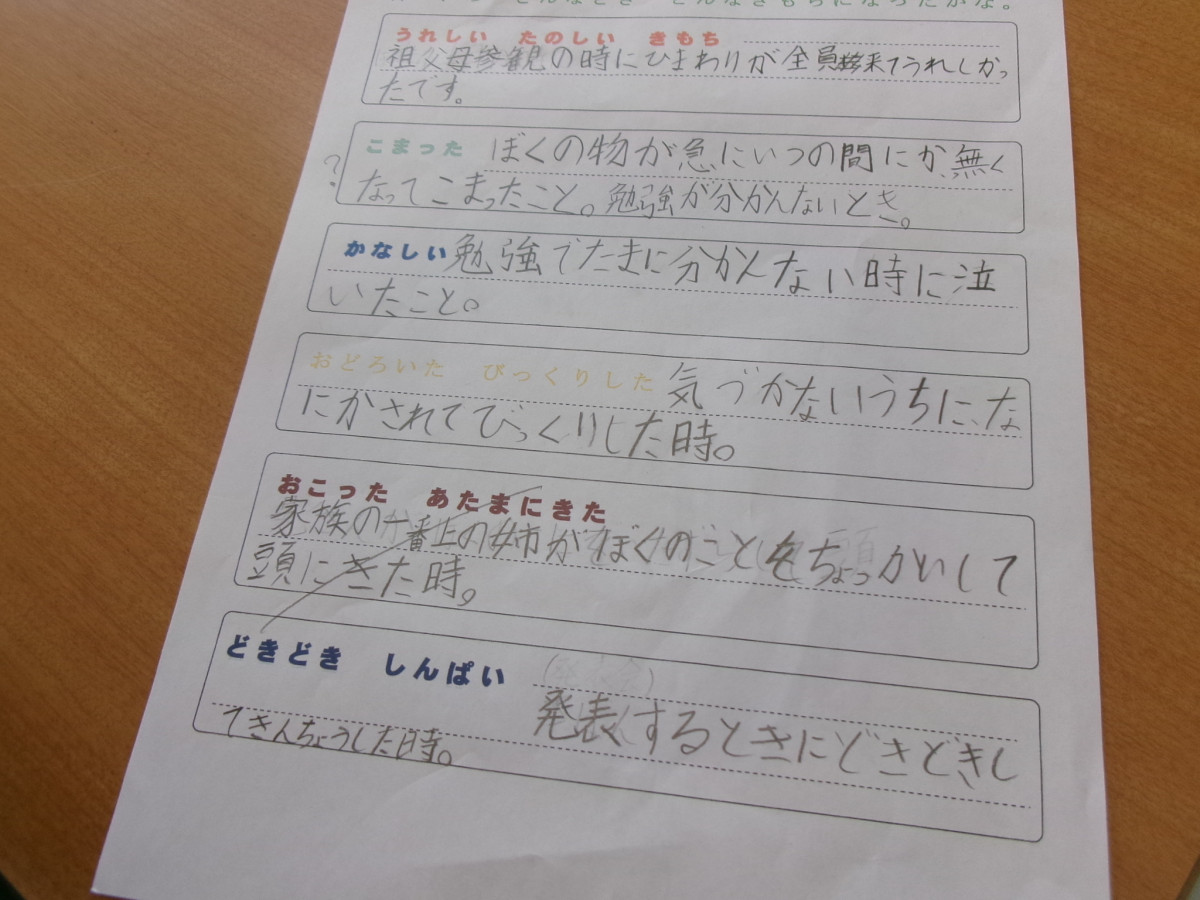 どんなとき どんなきもちになったかな。
うれしい たのしい きもち
祖父母参観の時にひまわりが全員来てうれしかっ
たです。
こまった ぼくの物が急にいつの間にか、無く
?
なってこまったこと。勉強が分かんないとき。
かなしい 勉強でたまに分かんない時に泣
いたこと。
おどろいた びっくりした 気づかないうちに、な
にかされてびっくりした時。
おこった あたまにきた
家族の一番上の姉がぼくのことをちょっかいして
頭にきた時。
どきどき しんぱい
発表するときにどきどきし
てきんちょうした時。